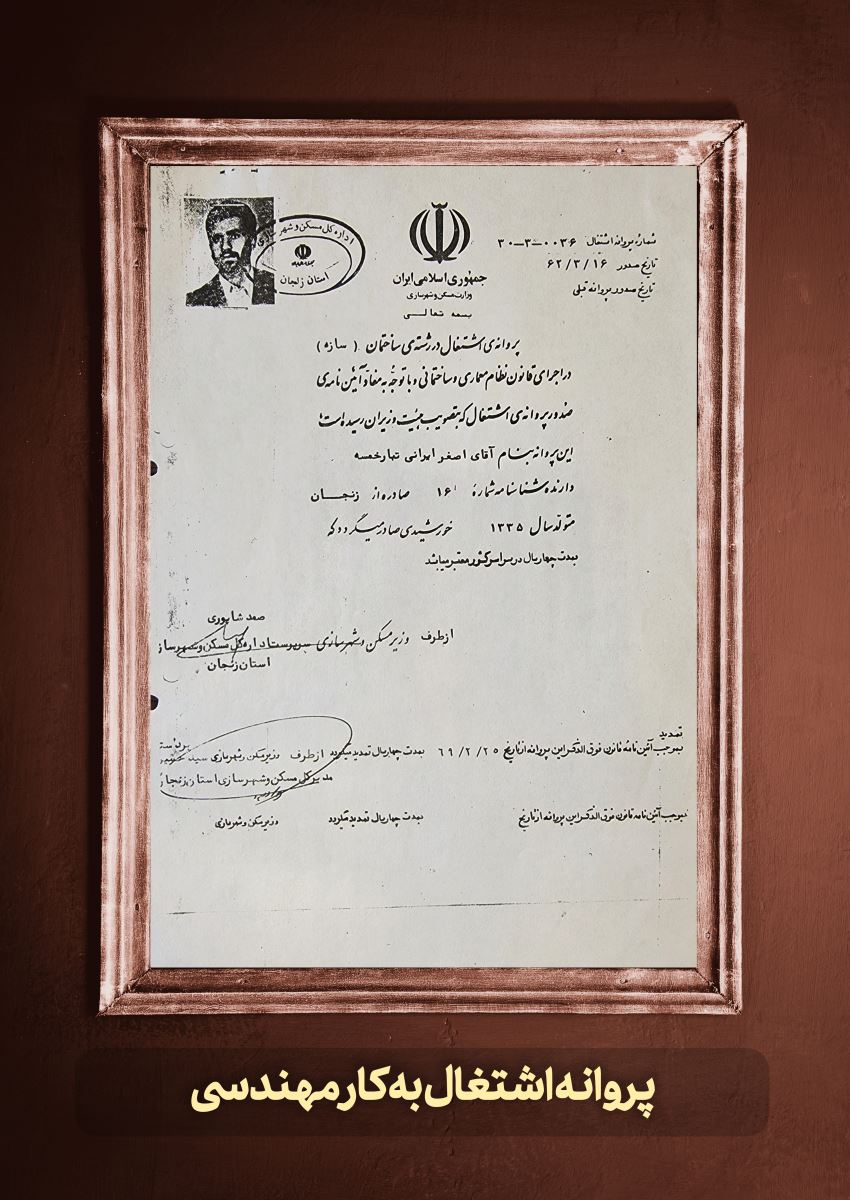 شماره پروانه اشتغال ۳۰-۳-۰۰۳۶
تاریخ صدور ۶۲/۳/۱۶
تاریخ صدور پروانه قبلی
اداره کل مسکن و شهرسازی
استان زنجان
جمهوری اسلامی ایران
وزارت مسکن و شهرسازی
بسمه تعالی
پروانه‌ی اشتغال در رشته‌ی ساختمان (سازه)
در اجرای قانون نظام معماری و ساختمانی و با توجه به مفاد آئین نامه‌ی
صدور پروانه‌ی اشتغال که بتصویب هیئت وزیران رسیده است؛
این پروانه بنام آقای اصغر ایرانی تبارخمسه
دارنده شناسنامه شماره ۱۶ صادره از زنجان
متولد سال ۱۳۳۵ خورشیدی صادر میگردد که
بمدت چهار سال در سراسر کشور معتبر میباشد
صمد شاپوری
از طرف وزیر مسکن و شهرسازی سرپرست اداره کل مسکن و شهرساز
استان زنجان
تمدید
بموجب آئین نامه قانون فوق الذکر این پروانه از تاریخ ۶۹/۲/۲۵ بمدت چهار سال تمدید میگردد از طرف وزیر مسکن و شهرسازی سید
مدیر کل مسکن و شهرسازی استان زنجان
بموجب آئین نامه قانون فوق الذکر این پروانه از تاریخ بمدت چهار سال تمدید میگردد وزیر مسکن و شهرسازی
پروانه اشتغال به کار مهندسی